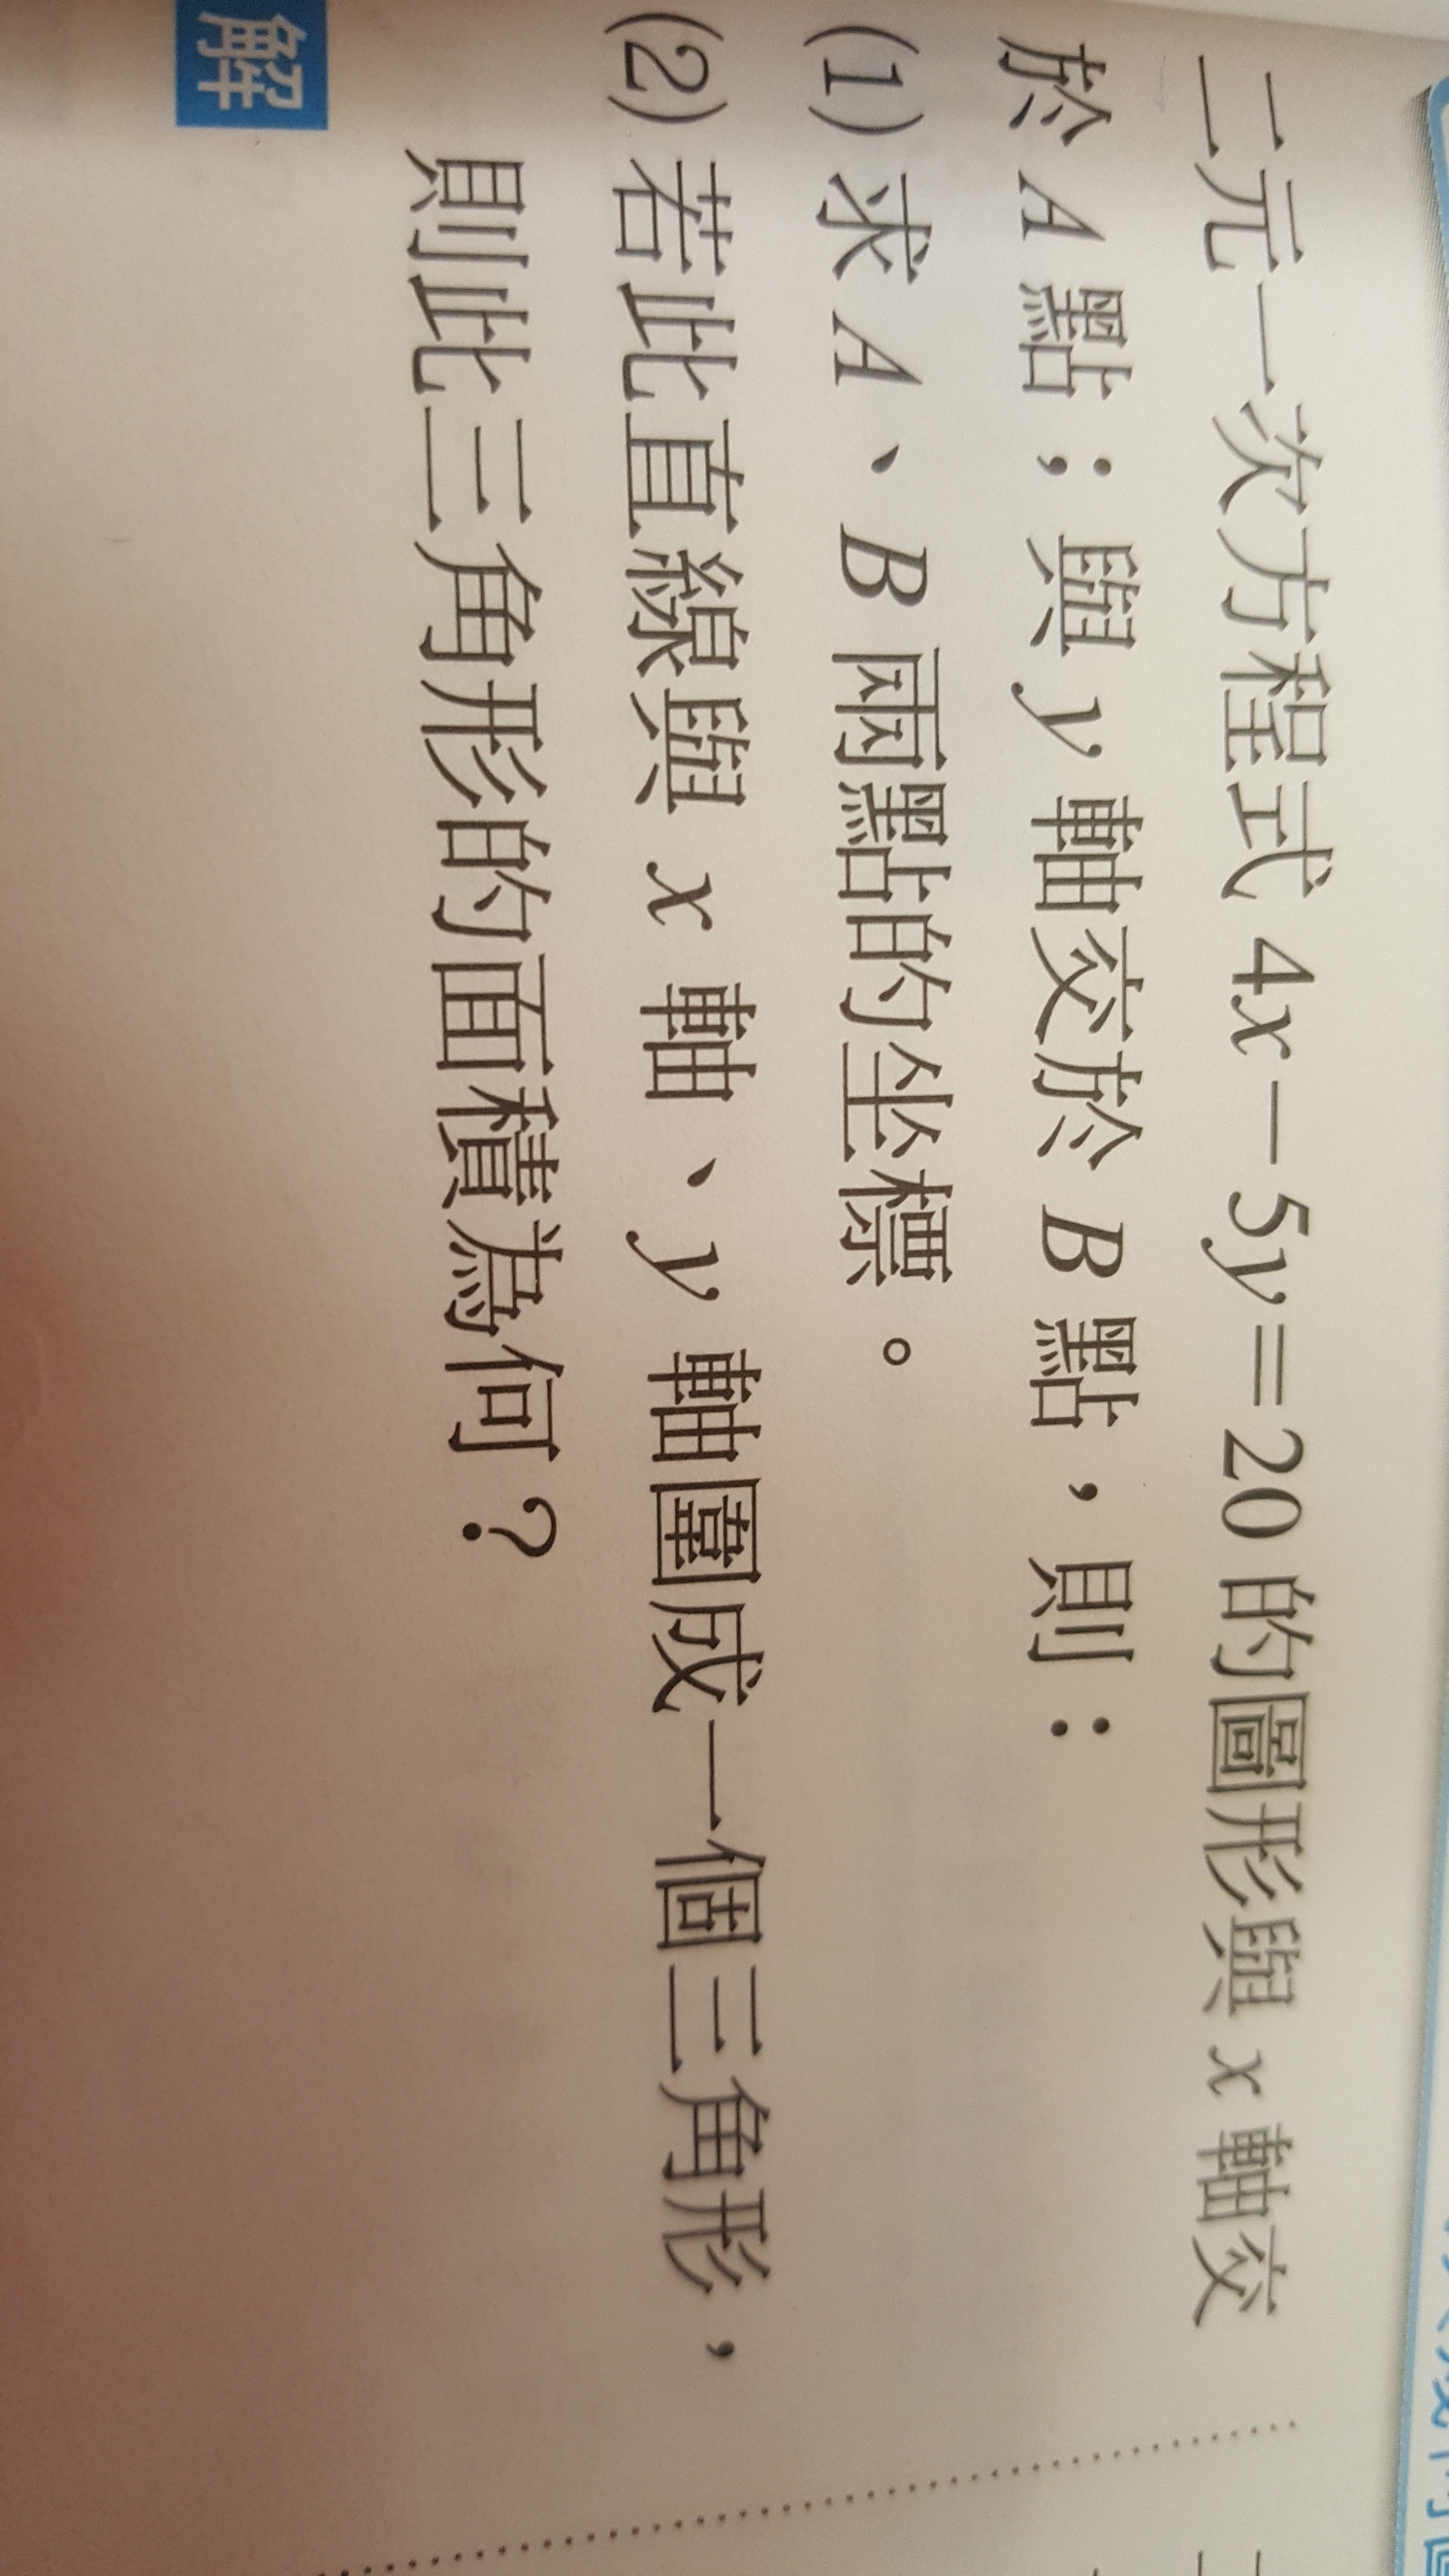 二元一次方程式 4x－5y＝20 的圖形與 x 軸交
於 A 點；與 y 軸交於 B 點，則：
(1) 求 A、B 兩點的坐標。
(2) 若此直線與 x 軸、y 軸圍成一個三角形，
則此三角形的面積為何？
解